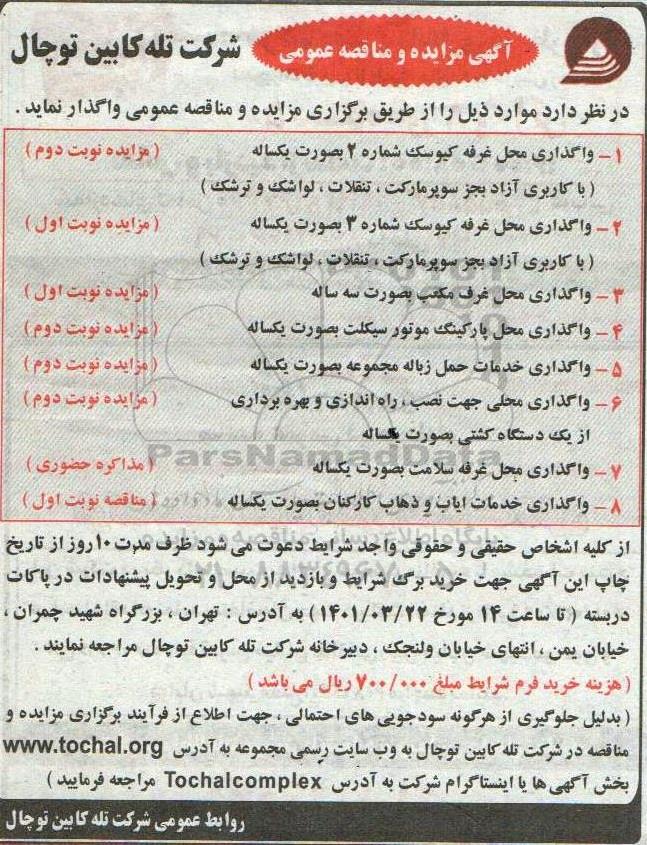 آگهی مزایده و مناقصه عمومی
شرکت تله کابین توچال
در نظر دارد موارد ذیل را از طریق برگزاری مزایده و مناقصه عمومی واگذار نماید .
۱- واگذاری محل غرفه کیوسک شماره ۲ بصورت یکساله ( مزایده نوبت دوم )
( با کاربری آزاد بجز سوپرمارکت ، تنقلات ، لواشک و ترشک )
۲- واگذاری محل غرفه کیوسک شماره ۳ بصورت یکساله ( مزایده نوبت اول )
( با کاربری آزاد بجز سوپرمارکت ، تنقلات ، لواشک و ترشک )
۳- واگذاری محل غرف مکتب بصورت سه ساله ( مزایده نوبت اول )
۴- واگذاری محل پارکینگ موتور سیکلت بصورت یکساله ( مزایده نوبت دوم )
۵- واگذاری خدمات حمل زباله مجموعه بصورت یکساله ( مزایده نوبت دوم )
۶- واگذاری محلی جهت نصب ، راه اندازی و بهره برداری ( مزایده نوبت دوم )
از یک دستگاه کشتی بصورت یکساله
ParsNamadData
۷- واگذاری محل غرفه سلامت بصورت یکساله ( مذاکره حضوری )
۸- واگذاری خدمات ایاب و ذهاب کارکنان بصورت یکساله ( مناقصه نوبت اول )
از کلیه اشخاص حقیقی و حقوقی واجد شرایط دعوت می شود ظرف مدت ۱۰ روز از تاریخ
چاپ این آگهی جهت خرید برگ شرایط و بازدید از محل و تحویل پیشنهادات در پاکات
دربسته ( تا ساعت ۱۴ مورخ ۱۴۰۱/۰۳/۲۲ ) به آدرس : تهران ، بزرگراه شهید چمران ،
خیابان یمن ، انتهای خیابان ولنجک ، دبیرخانه شرکت تله کابین توچال مراجعه نمایند .
( هزینه خرید فرم شرایط مبلغ ۷۰۰/۰۰۰ ریال می باشد )
( بدلیل جلوگیری از هرگونه سودجویی های احتمالی ، جهت اطلاع از فرآیند برگزاری مزایده و
مناقصه در شرکت تله کابین توچال به وب سایت رسمی مجموعه به آدرس www.tochal.org
بخش آگهی ها یا اینستاگرام شرکت به آدرس Tochalcomplex مراجعه فرمایید )
روابط عمومی شرکت تله کابین توچال